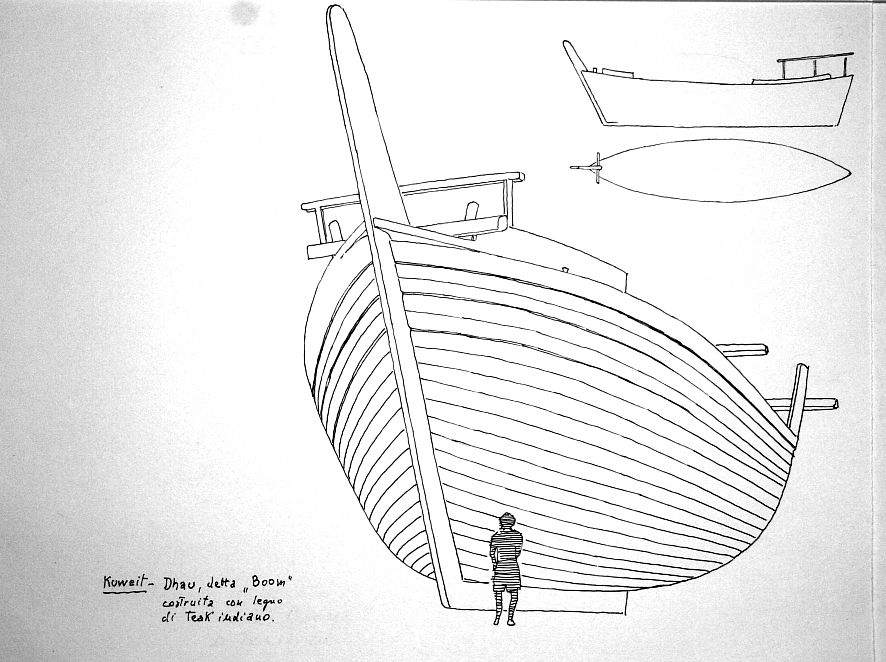 Kuweit - Dhau, detta „Boom"
costruita con legno
di Teak indiano.